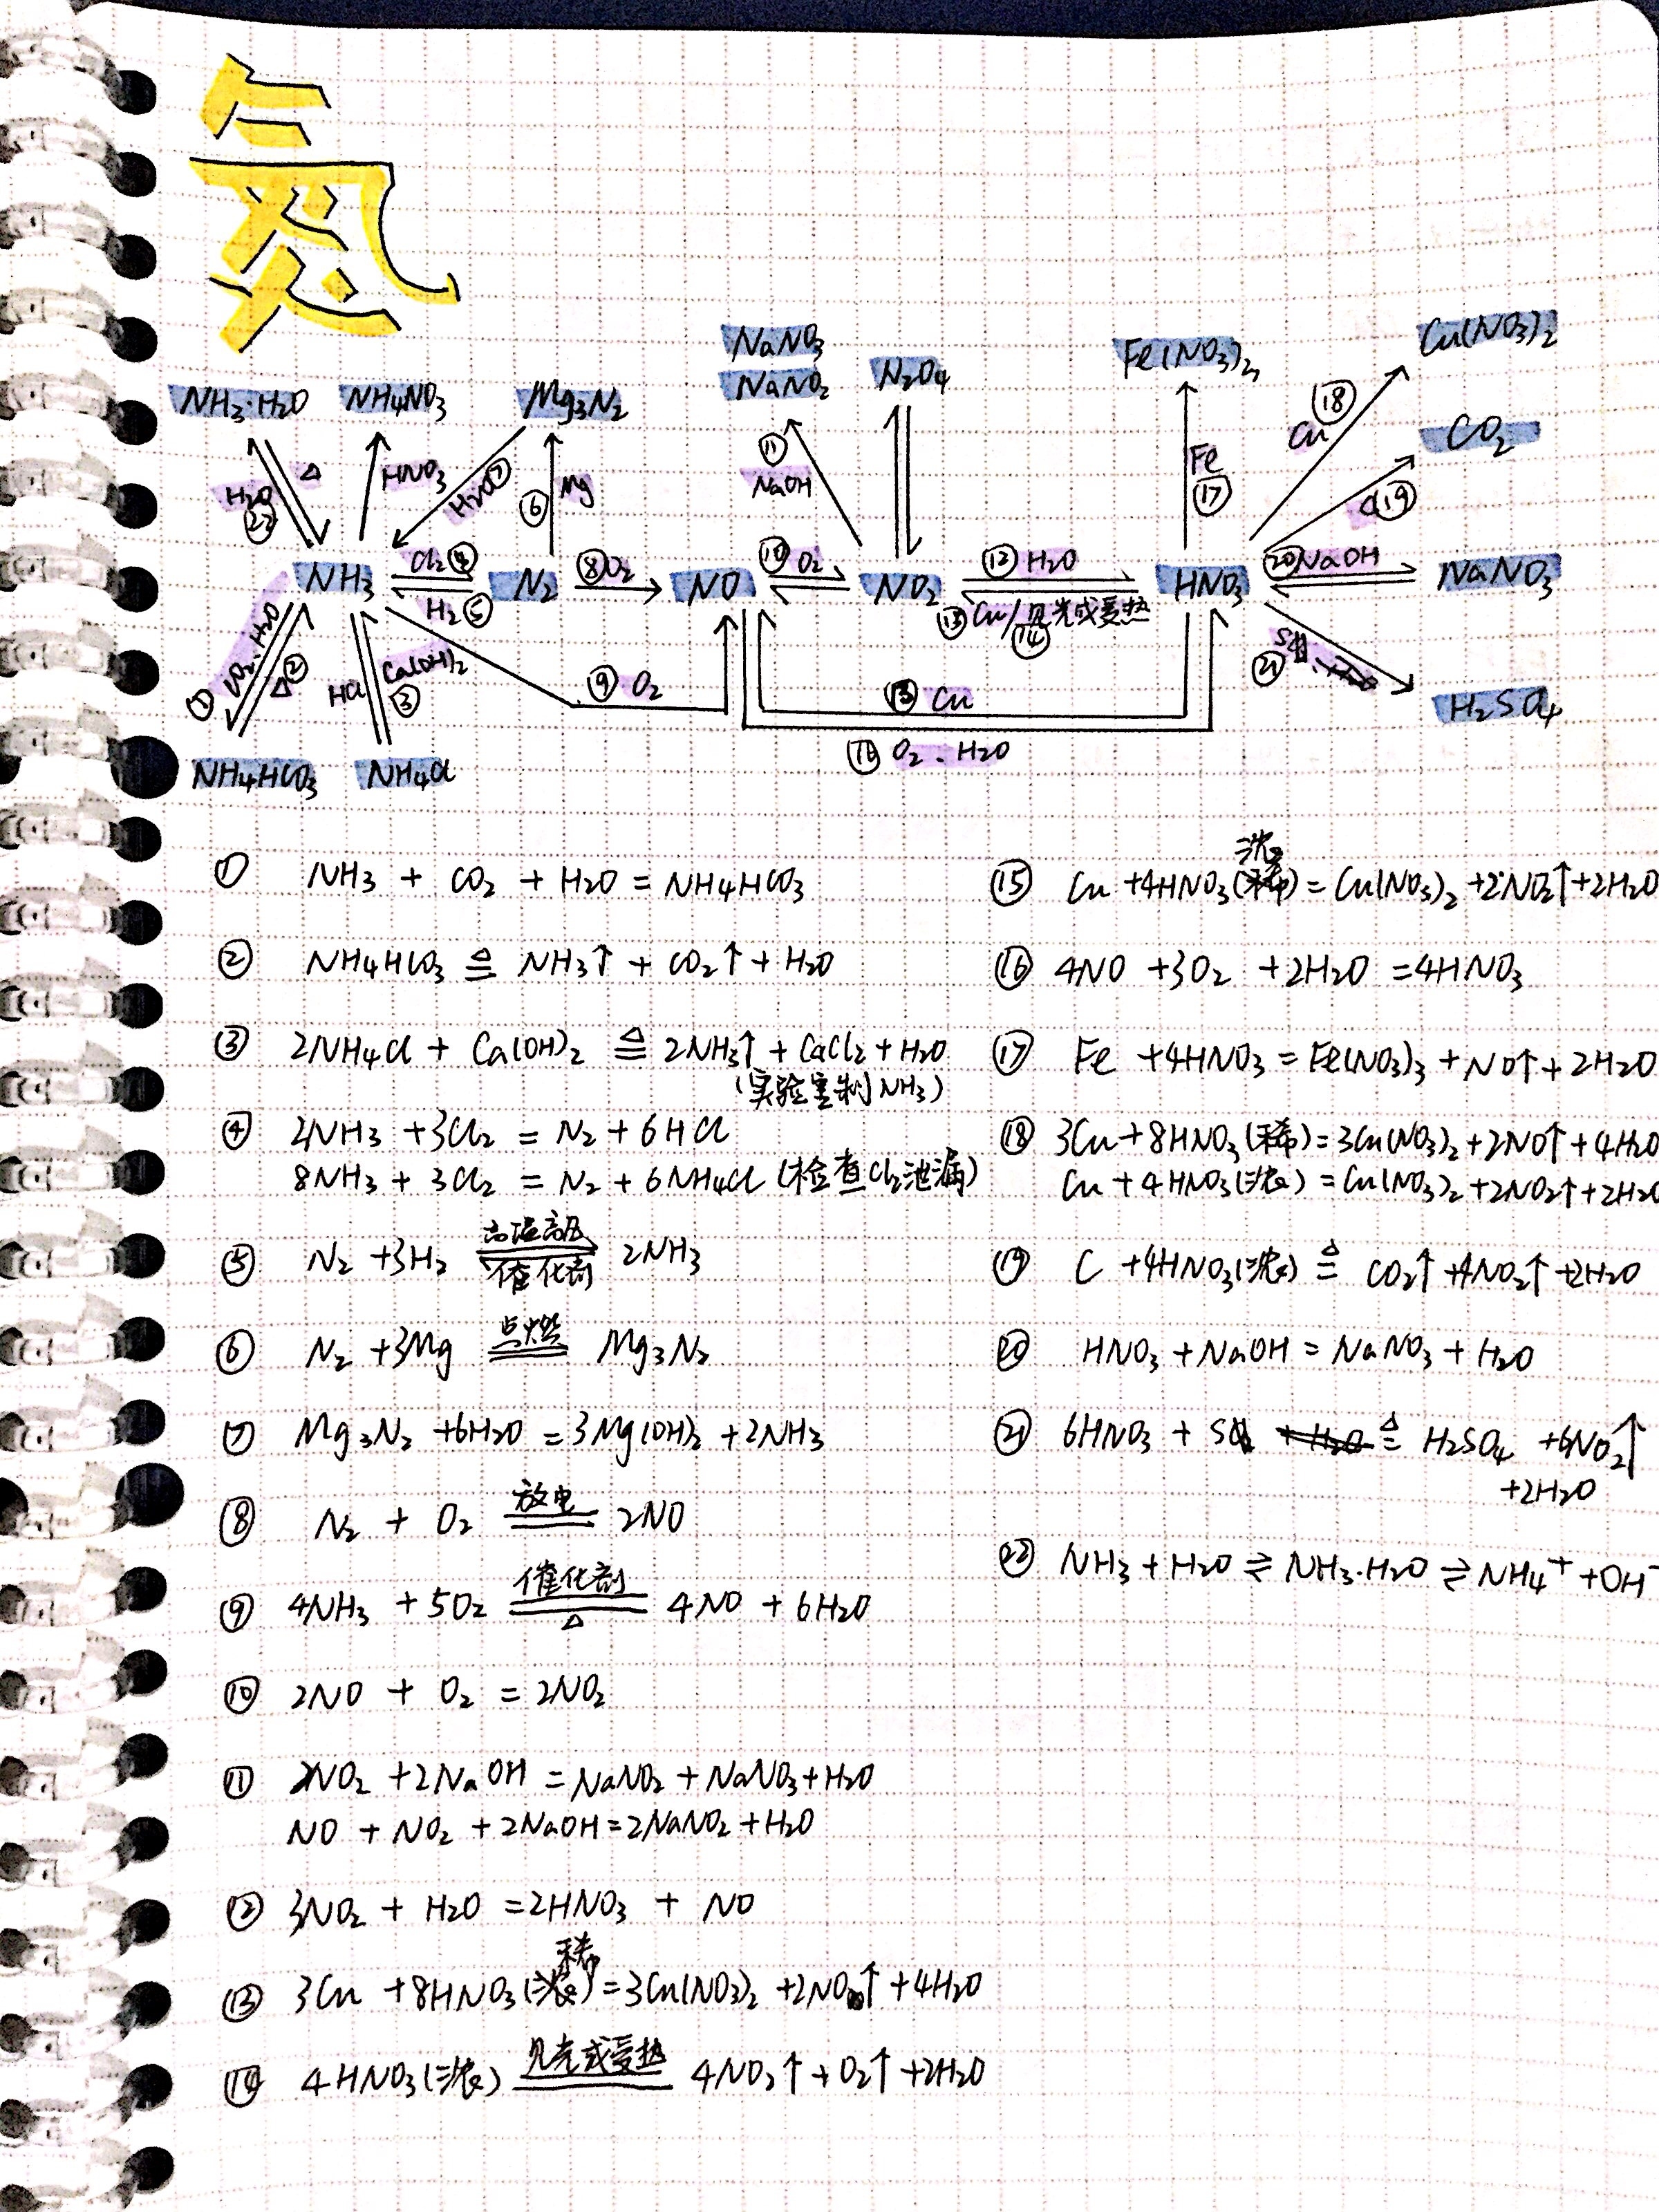 氮
NaNO3
NaNO2
N2O4
Fe(NO3)2
Cu(NO3)2
NH3·H2O
NH4NO3
Mg3N2
CO2
⑱
Cu
⑪
NaOH
H2O
㉒
△
HNO3
H2O⑦
⑥
Mg
Fe
⑰
C⑲
NH3
Cl2④
H2⑤
N2
⑧O2
NO
⑩O2
NO2
⑫H2O
⑬Cu/见光或受热
⑭
HNO3
⑳NaOH
NaNO3
①
CO2·H2O
△②
HCl
Ca(OH)2
③
⑨ O2
⑬ Cu
⑯ O2、H2O
㉑
H2SO4
NH4HCO3
NH4Cl
① NH3 + CO2 + H2O = NH4HCO3
② NH4HCO3 ≜ NH3↑ + CO2↑ + H2O
③ 2NH4Cl + Ca(OH)2 ≜ 2NH3↑ + CaCl2 + H2O
(实验室制NH3)
④ 2NH3 + 3Cl2 = N2 + 6HCl
8NH3 + 3Cl2 = N2 + 6NH4Cl (检查Cl2泄漏)
⑤ N2 + 3H2 高温高压 催化剂 2NH3
⑥ N2 + 3Mg 点燃 Mg3N2
⑦ Mg3N2 + 6H2O = 3Mg(OH)2 + 2NH3
⑧ N2 + O2 放电 2NO
⑨ 4NH3 + 5O2 催化剂 △ 4NO + 6H2O
⑩ 2NO + O2 = 2NO2
⑪ 2NO2 + 2NaOH = NaNO2 + NaNO3 + H2O
NO + NO2 + 2NaOH = 2NaNO2 + H2O
⑫ 3NO2 + H2O = 2HNO3 + NO
⑬ 3Cu + 8HNO3(稀) = 3Cu(NO3)2 + 2NO↑ + 4H2O
⑭ 4HNO3(浓) 见光或受热 4NO2↑ + O2↑ + 2H2O
⑮ Cu + 4HNO3(浓) = Cu(NO3)2 + 2NO2↑ + 2H2O
⑯ 4NO + 3O2 + 2H2O = 4HNO3
⑰ Fe + 4HNO3 = Fe(NO3)3 + NO↑ + 2H2O
⑱ 3Cu + 8HNO3(稀) = 3Cu(NO3)2 + 2NO↑ + 4H2O
Cu + 4HNO3(浓) = Cu(NO3)2 + 2NO2↑ + 2H2O
⑲ C + 4HNO3(浓) ≜ CO2↑ + 4NO2↑ + 2H2O
⑳ HNO3 + NaOH = NaNO3 + H2O
㉑ 6HNO3 + S ≜ H2SO4 + 6NO2↑
+2H2O
㉒ NH3 + H2O ⇌ NH3·H2O ⇌ NH4+ + OH-